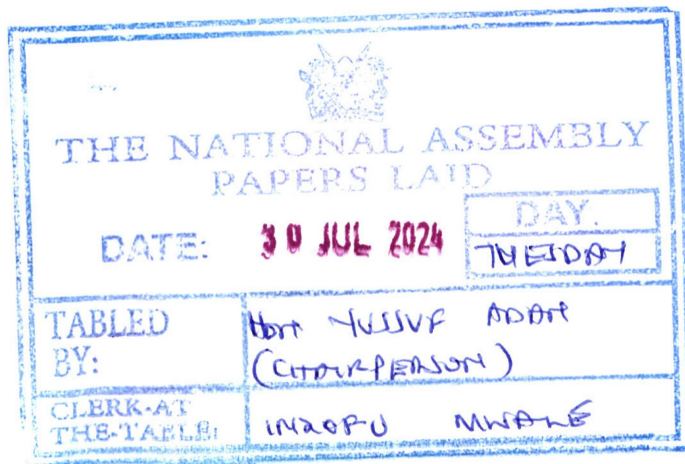 THE NATIONAL ASSEMBLY
PAPERS LAID
DATE: 30 JUL 2024
DAY.
TUESDAY
TABLED BY:
Hon YUSSUF ADAN
(CHAIRPERSON)
CLERK-AT THE-TABLE:
INZOFU MWALE